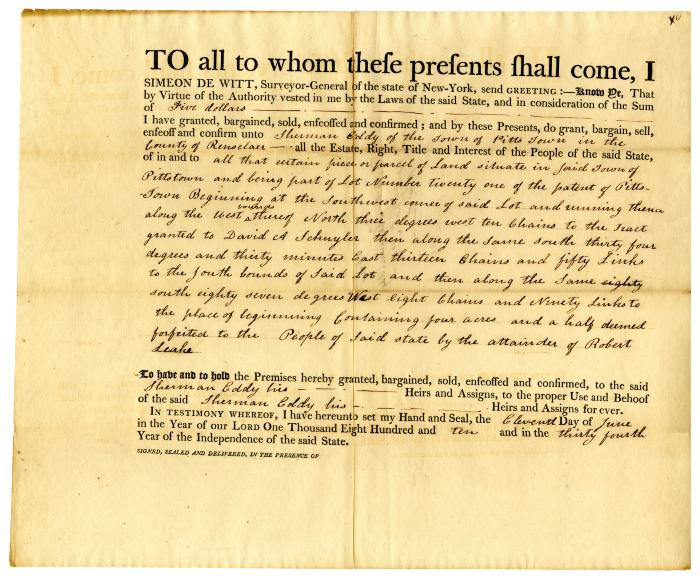 TO all to whom theſe preſents ſhall come, I
SIMEON DE WITT, Surveyor-General of the state of New-York, send GREETING:—Know Ye, That
by Virtue of the Authority vested in me by the Laws of the said State, and in consideration of the Sum
of Five dollars
I have granted, bargained, sold, enfeoffed and confirmed; and by these Presents, do grant, bargain, sell,
enfeoff and confirm unto Sherman Eddy of the Town of Pitts Town in the
County of Renselaer — all the Estate, Right, Title and Interest of the People of the said State,
of in and to all that certain piece or parcel of Land situate in said Town of
Pittstown and being part of Lot Number twenty one of the patent of Pitts-
-Town Beginning at the Southwest corner of said Lot and running thence
along the West bounds thereof North three degrees west ten Chains to the tract
granted to David A Schuyler then along the Same South thirty four
degrees and thirty minutes East thirteen Chains and fifty Links
to the South bounds of Said Lot and then along the Same eighty
south eighty seven degrees West eight Chains and Ninety Links to
the place of beginning Containing four acres and a half deemed
forfeited to the People of Said state by the attainder of Robert
Leake
To have and to hold the Premises hereby granted, bargained, sold, enfeoffed and confirmed, to the said
Sherman Eddy his — Heirs and Assigns, to the proper Use and Behoof
of the said Sherman Eddy his — Heirs and Assigns for ever.
IN TESTIMONY WHEREOF, I have hereunto set my Hand and Seal, the Eleventh Day of June
in the Year of our LORD One Thousand Eight Hundred and ten and in the thirty fourth
Year of the Independence of the said State.
SIGNED, SEALED AND DELIVERED, IN THE PRESENCE OF